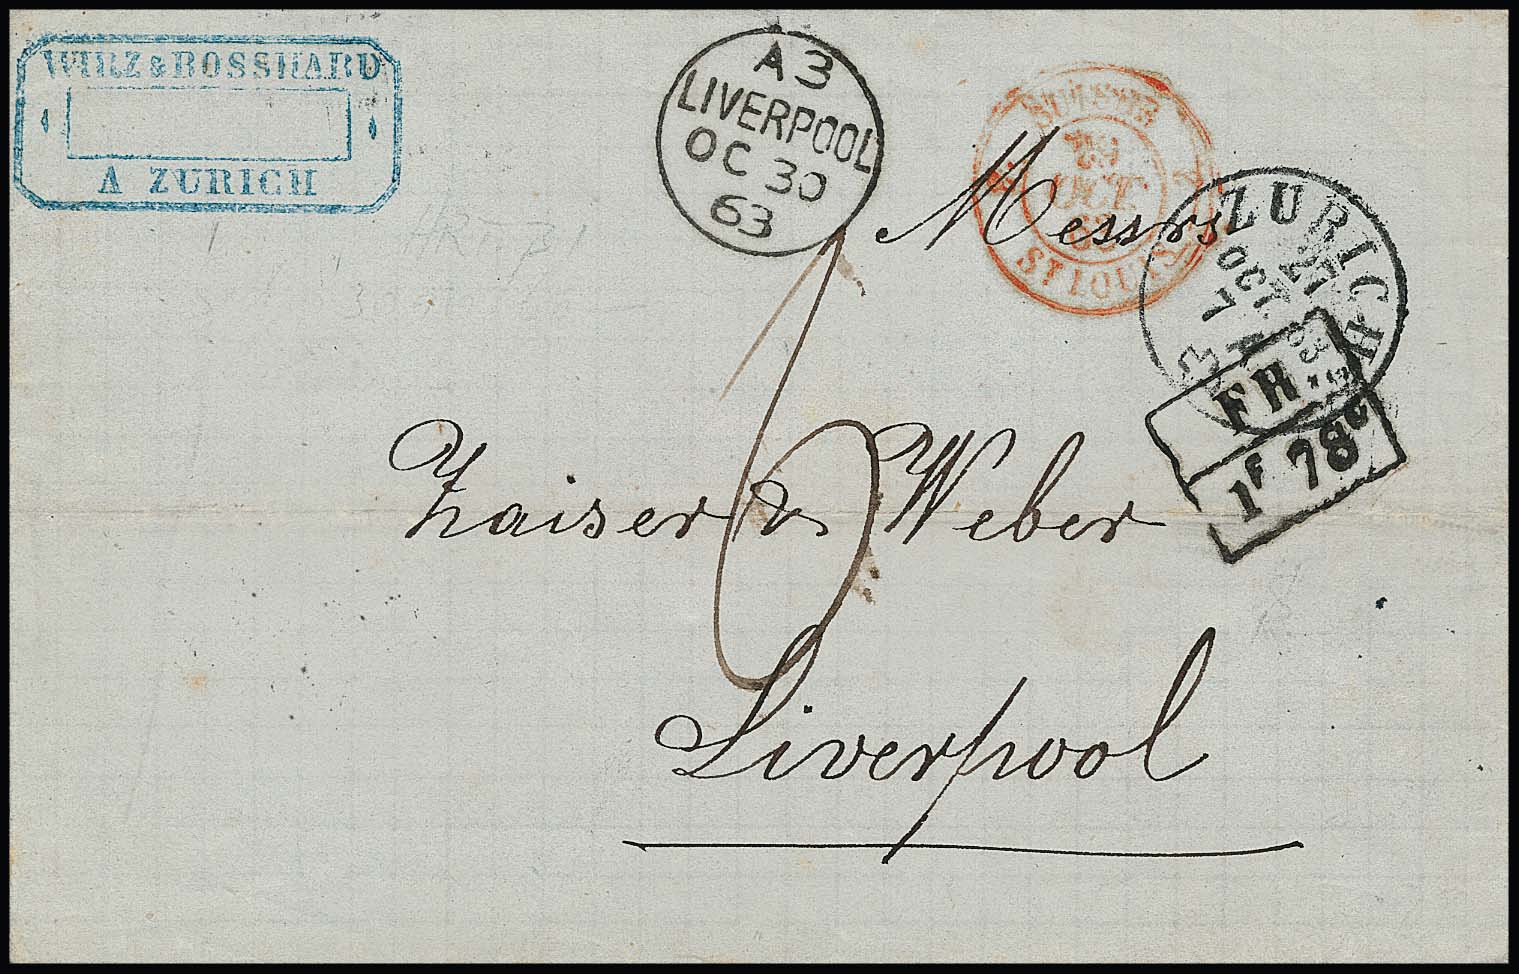 WIRZ & BOSSHARD
A ZURICH
A3
LIVERPOOL
OC 30
63
SUISSE
29
OCT.
63
ST LOUIS
ZURICH
27
OCT 63
7
FR.
1F 78c
Messrs
Kaiser & Weber
Liverpool